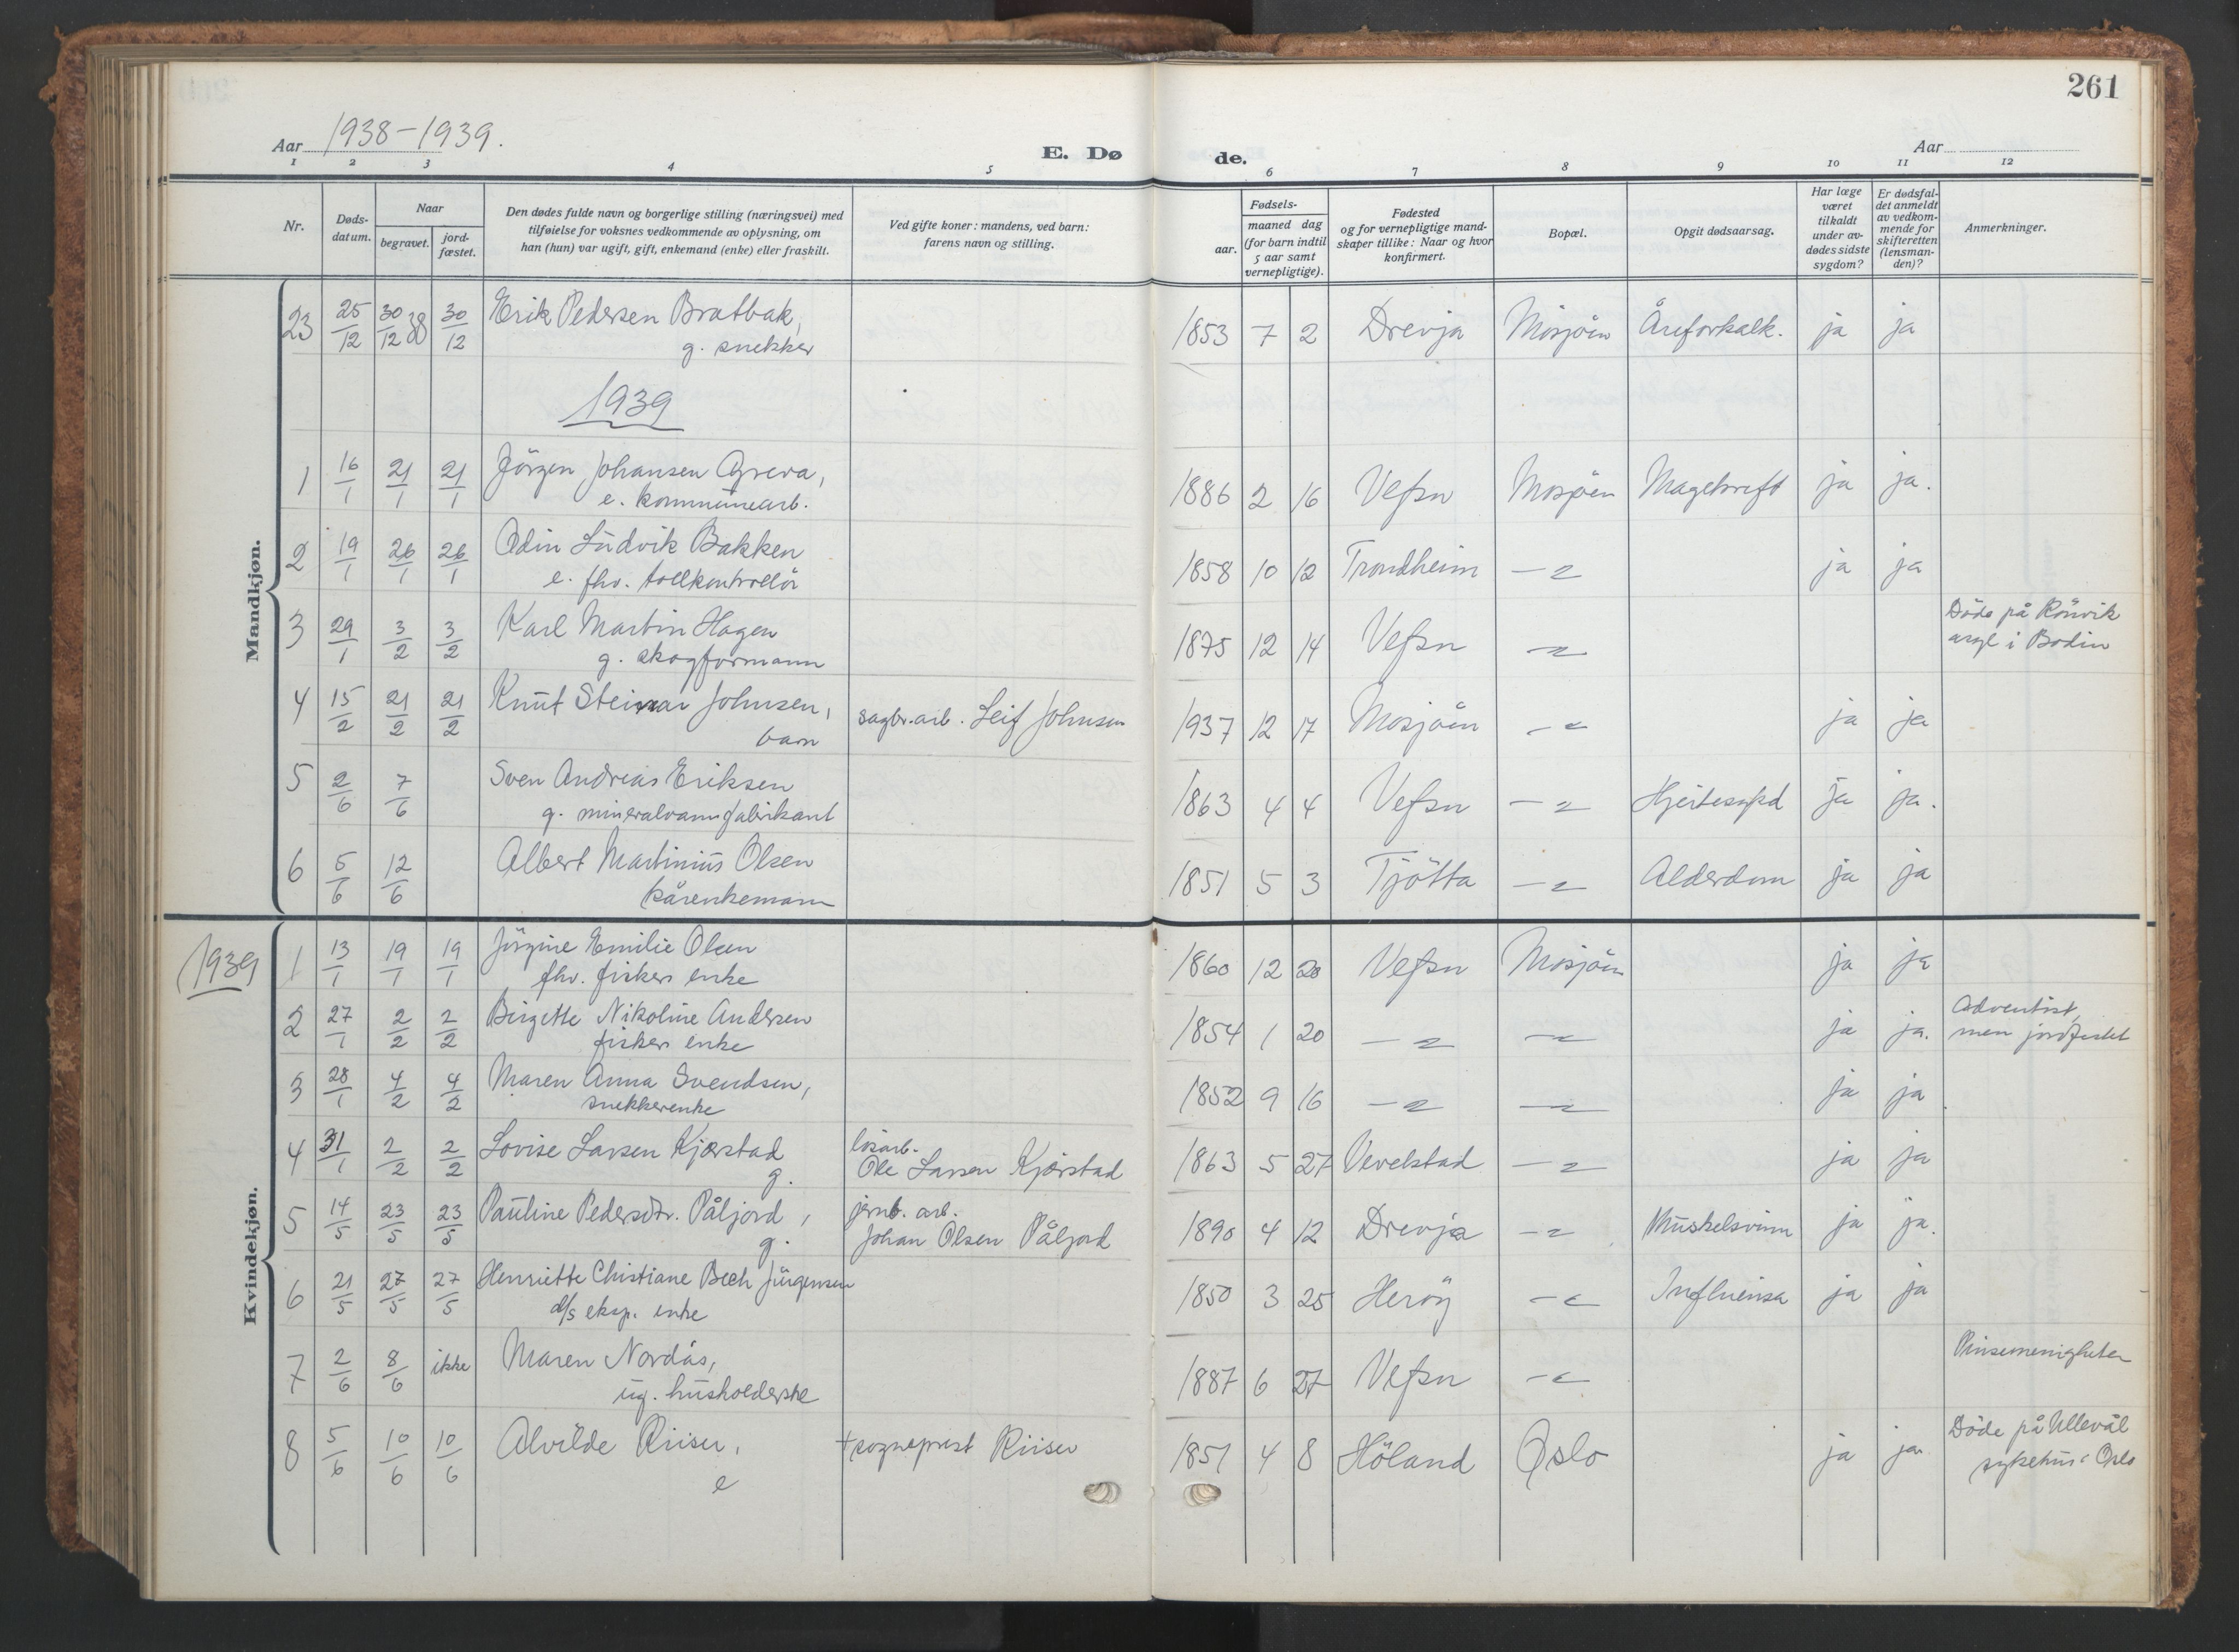 261
Aar 1938-1939.
E. Døde.
Aar
1 2 3 4 5 6 7 8 9 10 11 12
Nr.
Døds-datum.
Naar
begravet.
jord-fæstet.
Den dødes fulde navn og borgerlige stilling (næringsvei) med
tilføielse for voksnes vedkommende av oplysning, om
han (hun) var ugift, gift, enkemand (enke) eller fraskilt.
Ved gifte koner: mandens, ved barn:
farens navn og stilling.
Fødsels-
aar.
maaned dag
(for barn indtil
5 aar samt
vernepligtige).
Fødested
og for vernepligtige mand-
skaper tillike: Naar og hvor
konfirmert.
Bopæl.
Opgit dødsaarsag.
Har læge
været
tilkaldt
under av-
dødes sidste
sygdom?
Er dødsfal-
det anmeldt
av vedkom-
mende for
skifteretten
(lensman-
den)?
Anmerkninger.
Mandkjøn.
23 25/12 30/12 38 30/12 Erik Pedersen Bratbak, 1853 7 2 Drevja Mosjöen Åreforkalk. ja ja
g. snekker
1939
1 16/1 21/1 21/1 Jörgen Johansen Greva, 1886 2 16 Vefsn Mosjöen Magekreft ja ja.
e. kommunearb.
2 19/1 26/1 26/1 Odin Ludvik Bakken 1858 10 12 Trondheim —〃— ja ja
e. fhv. tollkontrollör
3 29/1 3/2 3/2 Karl Martin Hagen 1875 12 14 Vefsn —〃— Döde på Rönvik
g. skogformann asyl i Bodin
4 15/2 21/2 21/2 Knut Steinar Johnsen, sagbr.arb. Leif Johnsen 1937 12 17 Mosjöen —〃— ja ja
barn
5 2/6 7/6 Sven Andreas Eriksen 1863 4 4 Vefsn —〃— Hjertesykd ja ja.
g. mineralvannfabrikant
6 5/6 12/6 Albert Martinius Olsen 1851 5 3 Tjötta —〃— Alderdom ja ja
kårenkemann
Kvindekjøn.
1939
1 13/1 19/1 19/1 Jörgine Emilie Olsen 1860 12 20 Vefsn Mosjöen ja ja
fhv. fiskers enke
2 27/1 2/2 2/2 Birgette Nikoline Andersen 1854 1 20 —〃— —〃— ja ja. Adventist,
fiskers enke men jordfestet
3 28/1 4/2 4/2 Maren Anna Svendsen, 1852 9 16 —〃— —〃— ja ja
snekkerenke
4 31/1 2/2 2/2 Lovise Larsen Kjærstad lösarb. 1863 5 27 Vevelstad —〃— ja ja
g. Ole Larsen Kjærstad
5 14/5 23/5 23/5 Pauline Pedersdtr. Påljord, jernb. arb. 1890 4 12 Drevja —〃— Muskelsvinn ja ja.
g. Johan Olsen Påljord
6 21/5 27/5 27/5 Henriette Chistiane Bech Jürgensen 1850 3 25 Heröy —〃— Influensa ja ja
d/s eksp. enke
7 2/6 8/6 ikke Maren Nordås, 1887 6 27 Vefsn —〃— Pinsemenigheten
ug. husholderske
8 5/6 10/6 10/6 Alvilde Riiser, + sogneprest Riiser 1851 4 8 Höland Oslo ja ja Döde på Ullevål
e sykehus i Oslo